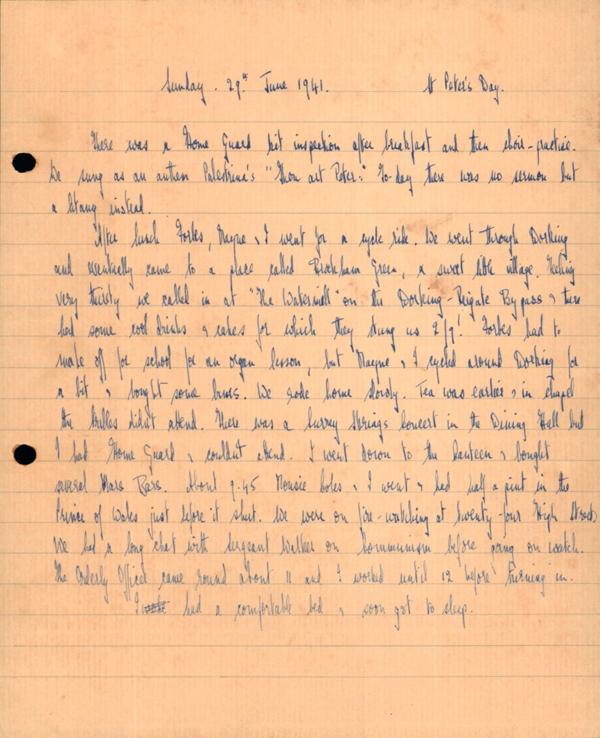 Sunday. 29th June 1941. St Peter's Day.
There was a Home Guard kit inspection after breakfast and then choir-practice.
We sung as an anthem Palestrina's "Thou art Peter." To-day there was no sermon but
a litany instead.
After lunch Forbes, Mayne & I went for a cycle ride. We went through Dorking
and eventually came to a place called Brockham Green, a sweet little village. Feeling
very thirsty we called in at "The Watermill" on the Dorking-Reigate Bypass & there
had some cool drinks & cakes for which they stung us 2/9! Forbes had to
make off for school for an organ lesson, but Mayne & I cycled around Dorking for
a bit & bought some buns. We rode home slowly. Tea was earlier & in chapel
the trebles didn't attend. There was a Surrey Strings concert in the Dining Hall but
I had Home Guard & couldn't attend. I went down to the Canteen & bought
several Mars Bars. About 9.45 Mousie & I went & had half a pint in the
Prince of Wales just before it shut. We were on fire-watching at twenty-four High Street.
We had a long chat with Sergeant Walker on Communism before going on watch.
The Orderly Officer came round about 11 and I worked until 12 before turning in.
I had a comfortable bed & soon got to sleep.